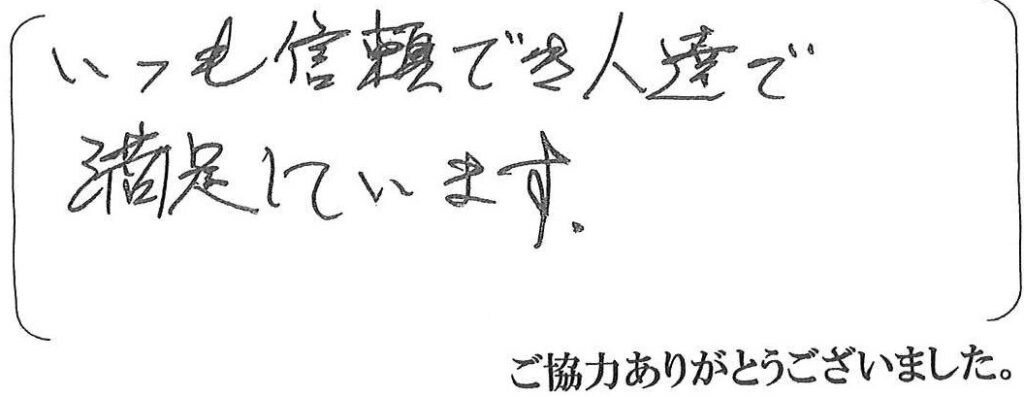 いつも信頼でき人達で
満足しています.
ご協力ありがとうございました。